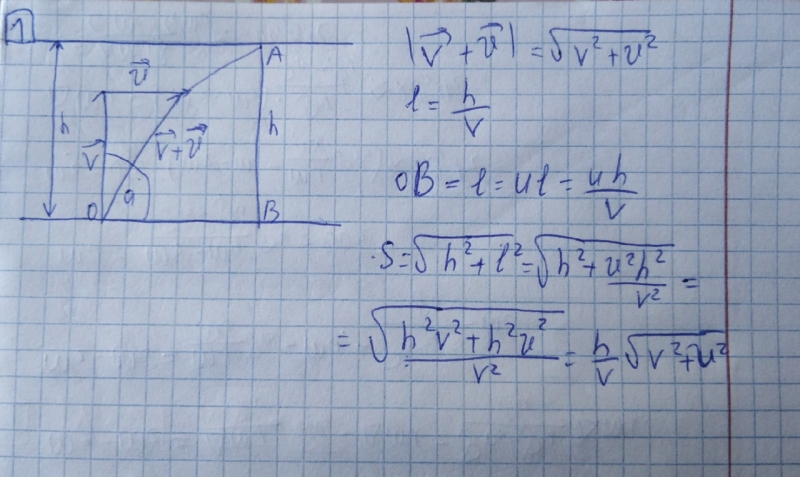 1
A
u⃗
h
h
v⃗
v⃗+u⃗
α
O
B
|v⃗ + u⃗| = √(v² + u²)
l = h/v
OB = l = ul = uh/v
S = √(h² + l²) = √(h² + u²h²/v²) =
= √((h²v² + h²u²)/v²) = h/v √(v² + u²)